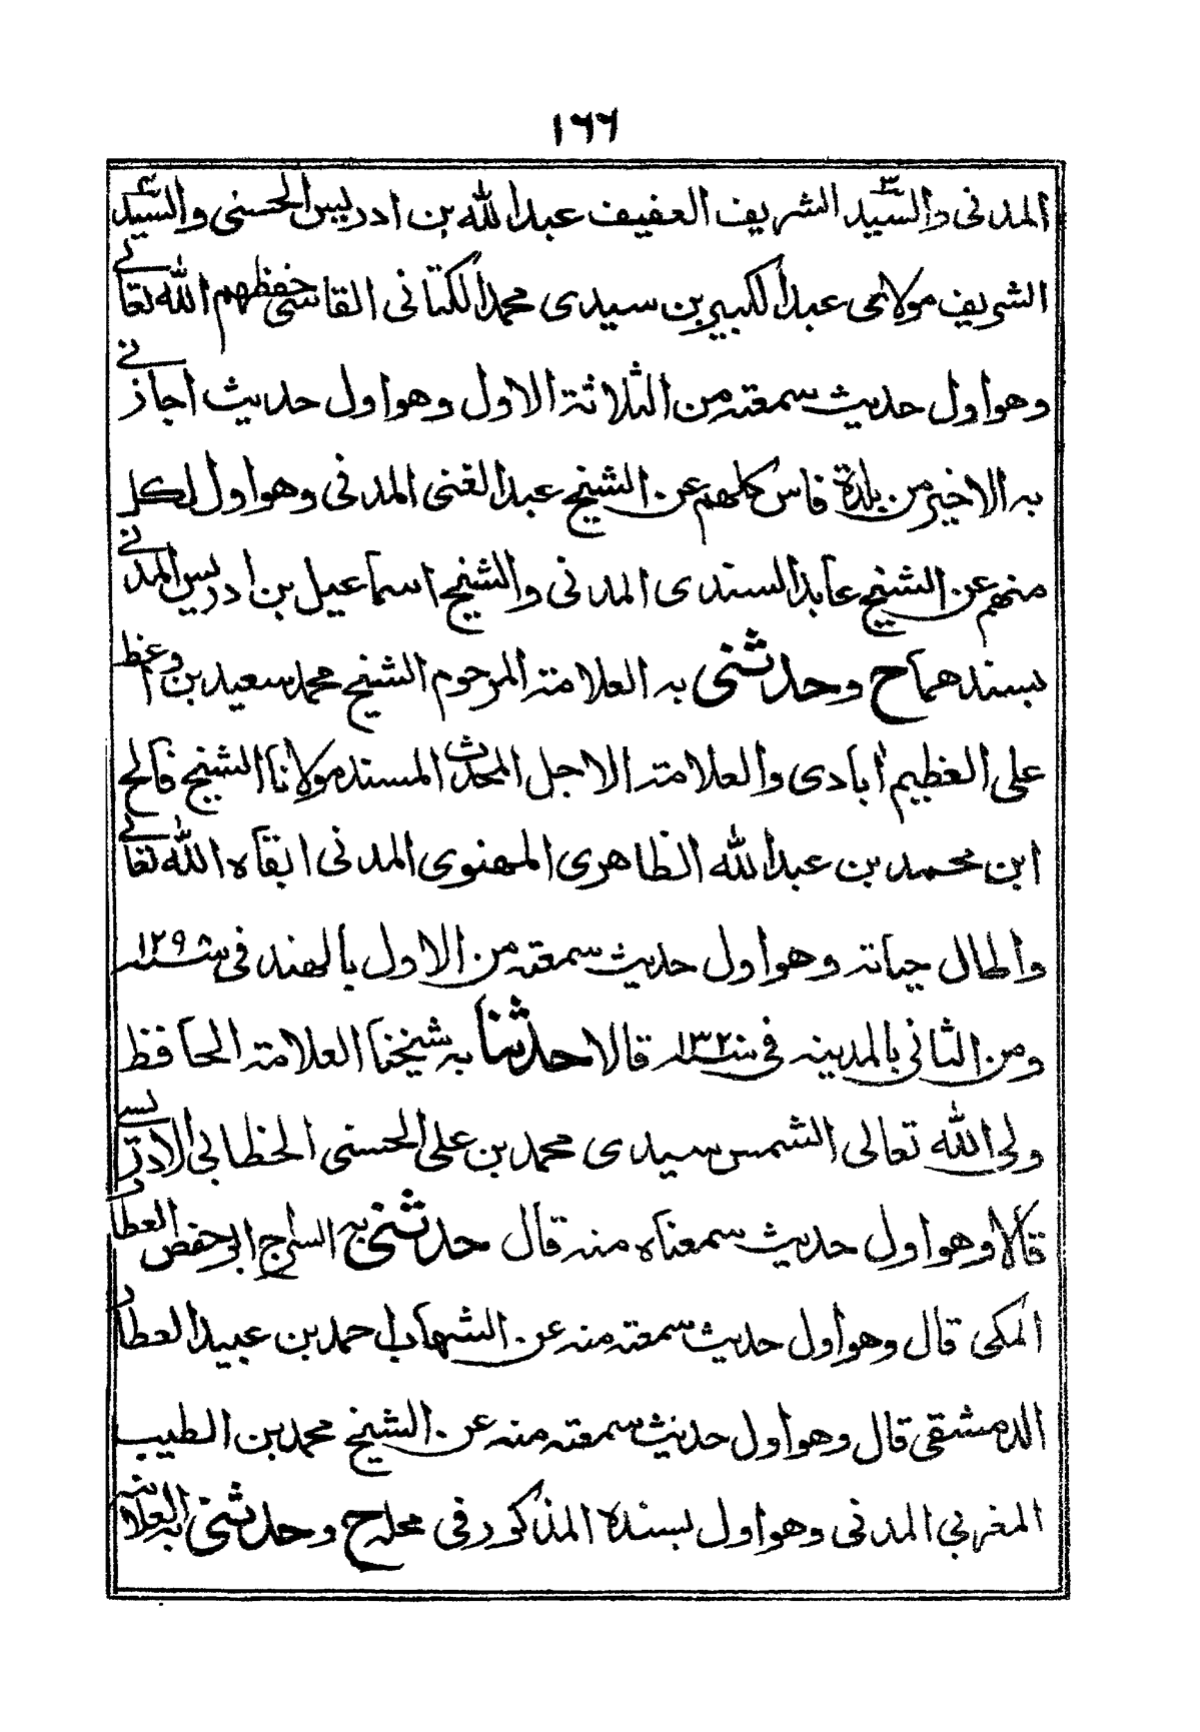 ١٦٦
المدنى والسيد الشريف العفيف عبد الله بن ادريس الحسنى والسيد
الشريف مولاى عبد الكبير بن سيدى محمد الكتانى الفاسى حفظهم الله تعالى
وهو اول حديث سمعته من الثلاثة الاول وهو اول حديث اجازنى
به الاخير من بلدة فاس كلهم عن الشيخ عبد الغنى المدنى وهو اول لكل
منهم عن الشيخ عابد السندى المدنى والشيخ اسماعيل بن ادريس المدنى
بسندهما ح وحدثنى به العلامة المرحوم الشيخ محمد سعيد بن واعظ
على العظيم آبادى والعلامة الاجل المحدث المسند مولانا الشيخ فالح
ابن محمد بن عبد الله الظاهرى المهنوى المدنى ابقاه الله تعالى
واطال حياته وهو اول حديث سمعته من الاول بالهند فى سنة ١٢٩٨
ومن الثانى بالمدينه فى سنة ١٣٢٠ قالا حدثنا به شيخنا العلامة الحافظ
ولى الله تعالى الشمس سيدى محمد بن على الحسنى الخطابى الادريسى
قالا وهو اول حديث سمعناه منه قال حدثنى به السراج ابو حفص العطار
المكى قال وهو اول حديث سمعته منه عن الشهاب احمد بن عبيد العطار
الدمشقى قال وهو اول حديث سمعته منه عن الشيخ محمد بن الطيب
المغربى المدنى وهو اول بسنده المذكور فى محله ح وحدثنى به العلامة